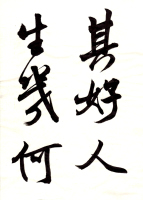 其好人
生幾何